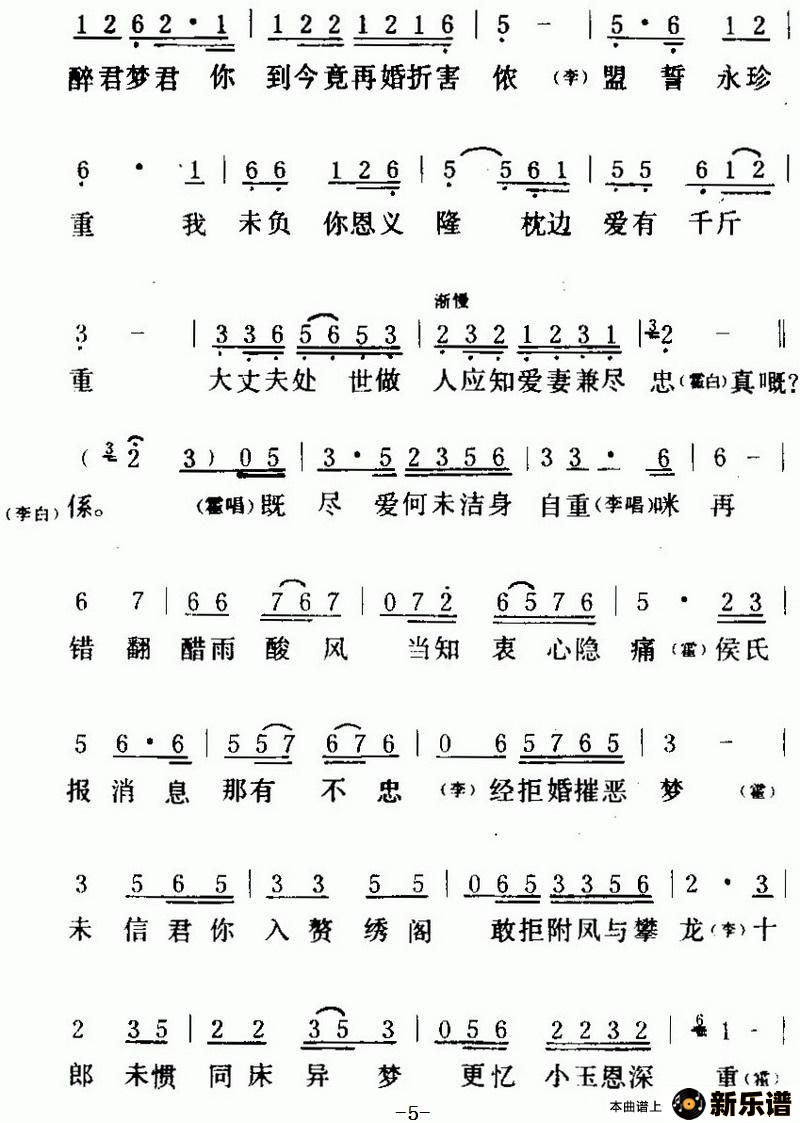 1 2 6 2 · 1 | 1 2 2 1 2 1 6 | 5 - | 5 · 6 1 2 |
醉君梦君 你 到今竟再婚折害 侬 (李) 盟 誓 永珍
6 · 1 | 6 6 1 2 6 | 5 5 6 1 | 5 5 6 1 2 |
重 我 未负 你恩义 隆 枕边 爱有 千斤
渐慢
3 - | 3 3 6 5 6 5 3 | 2 3 2 1 2 3 1 | 3 2 - ‖
重 大丈夫处 世做 人应知爱妻兼尽 忠(霍白)真嘅?
( 3 2 3 ) 0 5 | 3 · 5 2 3 5 6 | 3 3 · 6 | 6 - |
(李白) 係。 (霍唱)既 尽 爱何未洁身 自重(李唱)咪 再
6 7 | 6 6 7 6 7 | 0 7 2 6 5 7 6 | 5 · 2 3 |
错 翻 醋雨 酸 风 当知 衷 心隐 痛 (霍) 侯氏
5 6 · 6 | 5 5 7 6 7 6 | 0 6 5 7 6 5 | 3 - |
报 消 息 那有 不 忠 (李) 经拒婚摧恶 梦 (霍)
3 5 6 5 | 3 3 5 5 | 0 6 5 3 3 5 6 | 2 · 3 |
未 信 君 你 入 赘 绣 阁 敢拒附凤与攀 龙 (李) 十
2 3 5 | 2 2 3 5 3 | 0 5 6 2 2 3 2 | 6 1 - |
郎 未惯 同 床 异 梦 更忆 小玉恩深 重(霍)
-5-
本曲谱上 新乐谱